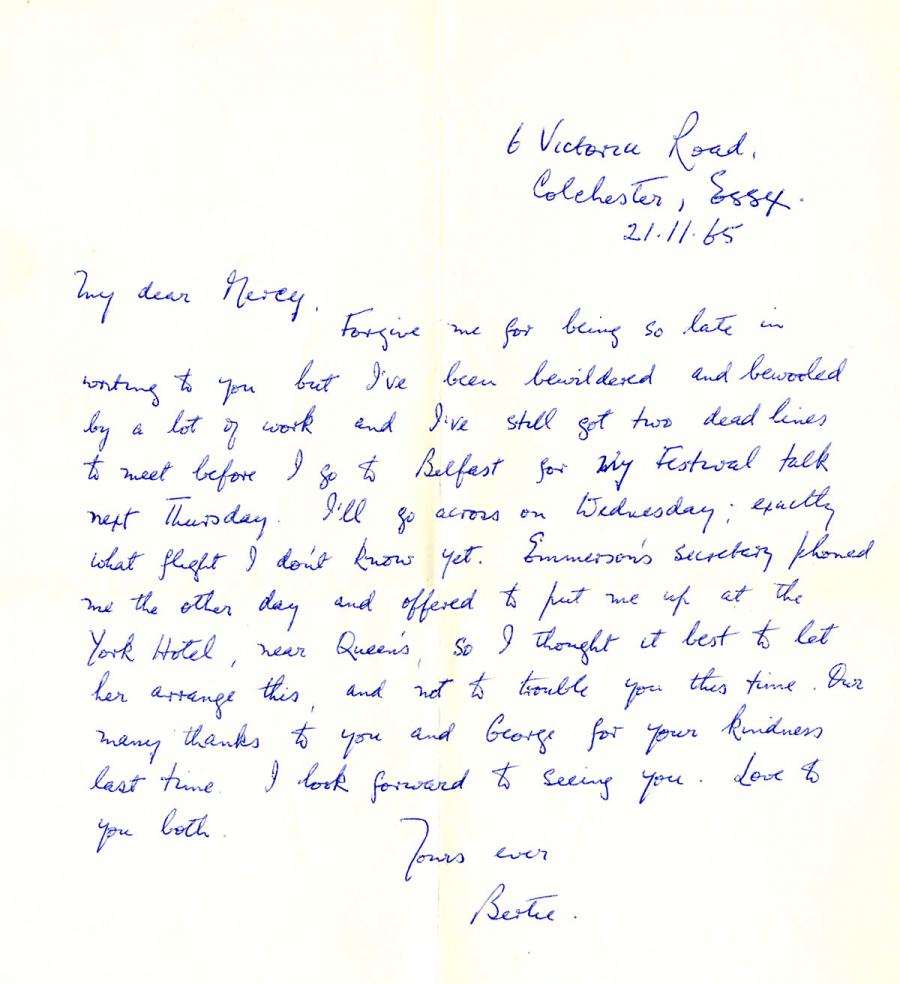 6 Victoria Road.
Colchester, Essex.
21.11.65
My dear Mercy,
Forgive me for being so late in
writing to you but I've been bewildered and bewooled
by a lot of work and I've still got two dead lines
to meet before I go to Belfast for my Festival talk
next Thursday. I'll go across on Wednesday; exactly
what flight I don't know yet. Emmerson's secretary phoned
me the other day and offered to put me up at the
York Hotel, near Queen's, so I thought it best to let
her arrange this, and not to trouble you this time. Our
many thanks to you and George for your kindness
last time. I look forward to seeing you. Love to
you both.
Yours ever
Bertie.